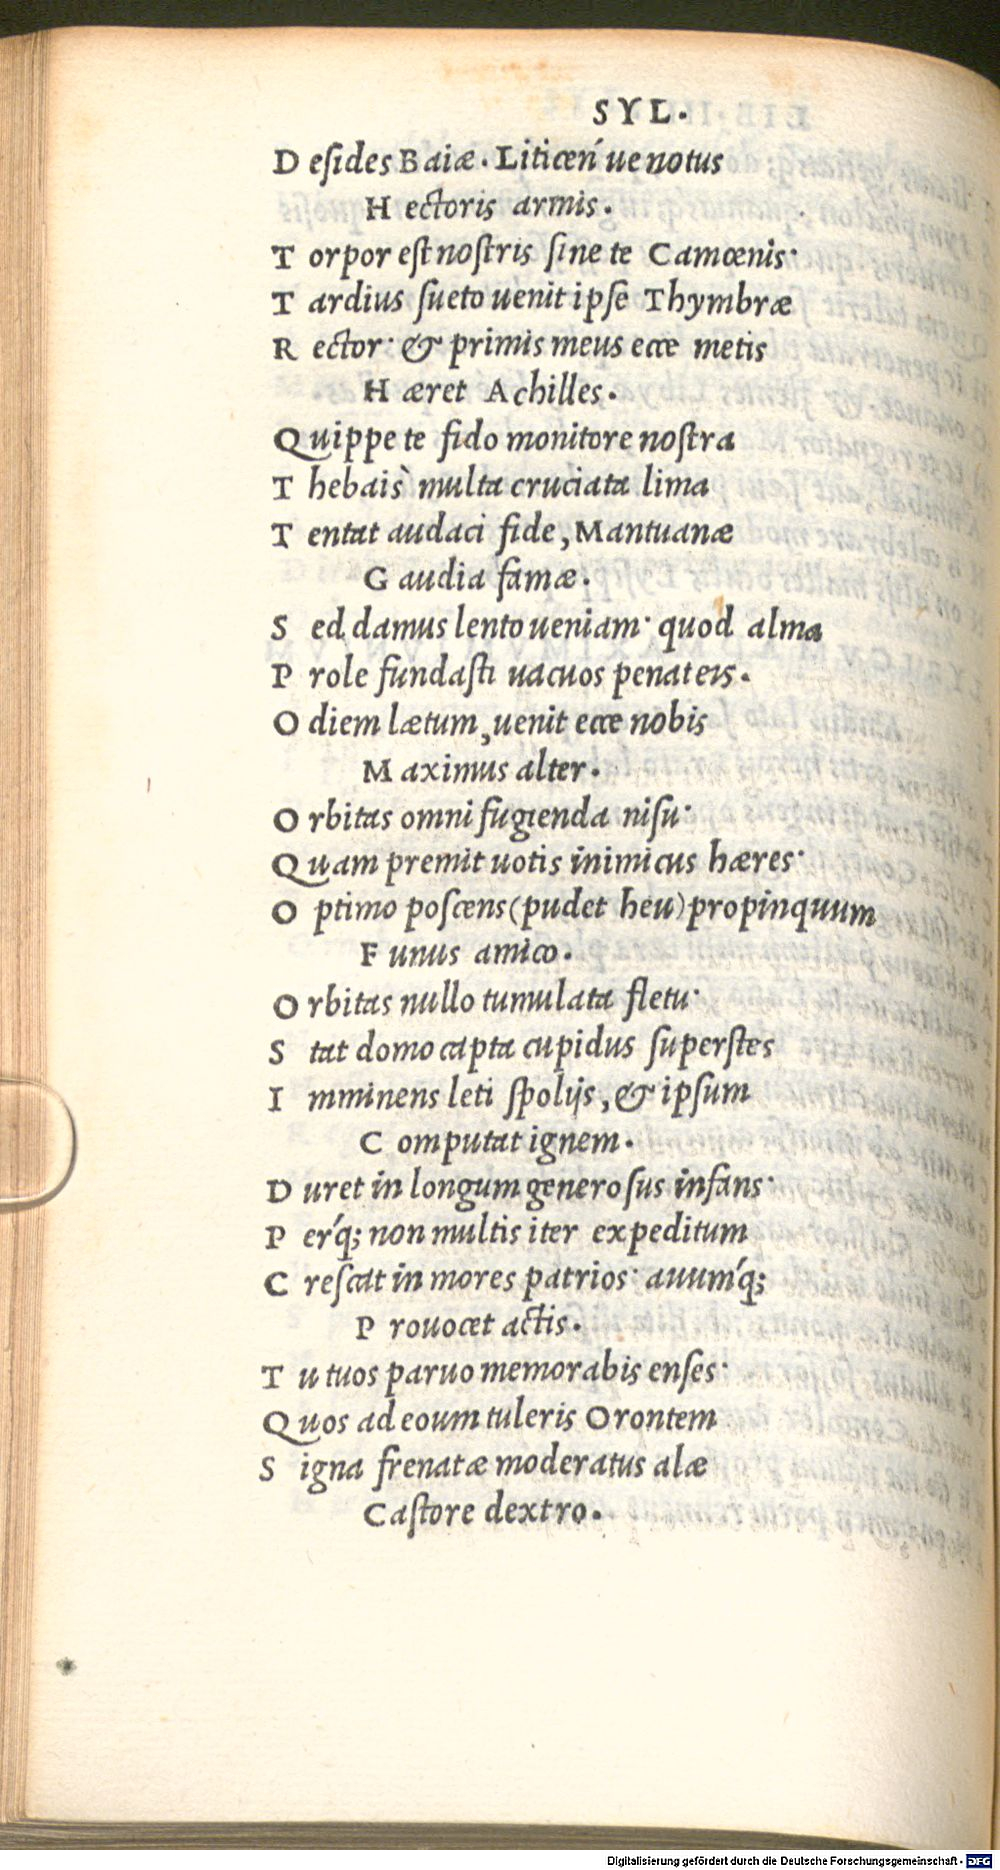 SYL.
D esides Baiæ. Liticen´ue notus
H ectoris armis.
T orpor est nostris sine te Camœnis·
T ardius sueto uenit ipse Thymbræ
R ector· & primis meus ecce metis
H æret Achilles.
Q uippe te fido monitore nostra
T hebais` multa cruciata lima
T entat audaci fide, Mantuanæ
G audia famæ.
S ed damus lento ueniam· quod alma
P role fundasti uacuos penateis.
O diem lætum, uenit ecce nobis
M aximus alter.
O rbitas omni fugienda nisu·
Q uam premit uotis inimicus hæres·
O ptimo poscens (pudet heu) propinquum
F unus amico.
O rbitas nullo tumulata fletu·
S tat domo capta cupidus superstes
I mminens leti spolijs, & ipsum
C omputat ignem.
D uret in longum generosus infans·
P er´q; non multis iter expeditum
C rescat in mores patrios· auum´q;
P rouocet actis.
T u tuos paruo memorabis enses·
Q uos ad eoum tuleris Orontem
S igna frenatæ moderatus alæ
Castore dextro.
Digitalisierung gefördert durch die Deutsche Forschungsgemeinschaft - DFG